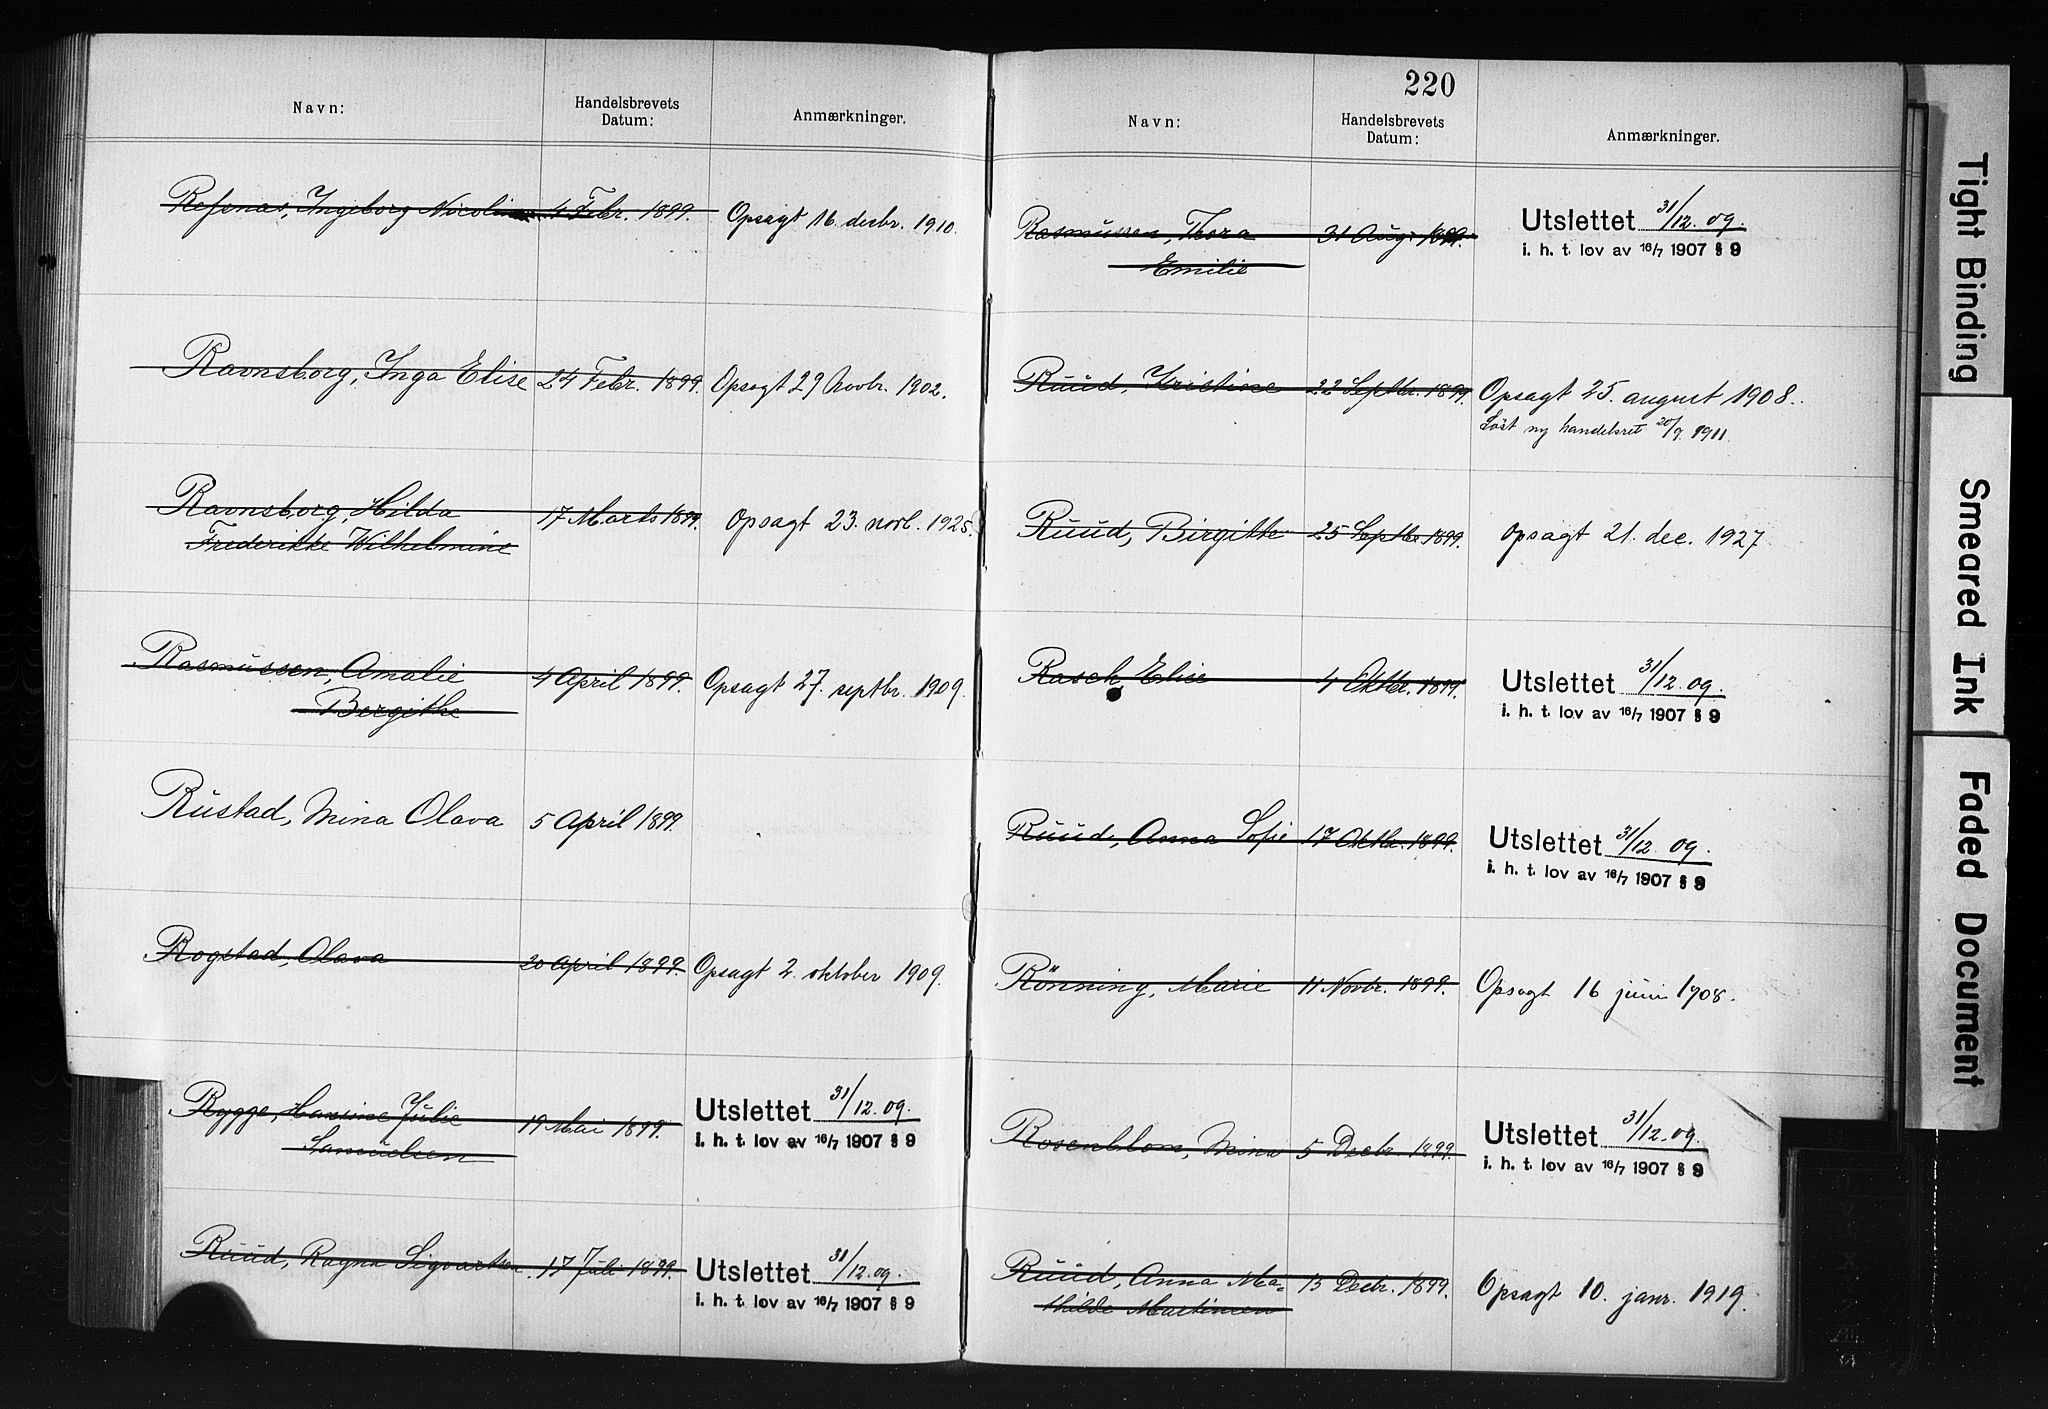 Navn:
Handelsbrevets
Datum:
Anmærkninger.
Refsnas, Ingeborg Nicoline 4 Febr. 1899. Opsagt 16 decbr. 1910.
Ravnsborg, Inga Elise 24 Febr. 1899. Opsagt 29 Novbr. 1902.
Ravnsborg, Hilda 17 Marts 1899. Opsagt 23. novb. 1925.
Frederikke Wilhelmine
Rasmussen, Amalie 4 April 1899. Opsagt 27. septbr. 1909.
Bergithe
Rustad, Mina Olava 5 April 1899.
Rogstad, Olava 20 April 1899. Opsagt 2. oktober 1909.
Rygge, Hansine Julie 19 Mai 1899. Utslettet 31/12. 09.
Samuelsen i. h. t. lov av 16/7 1907 § 9
Ruud, Ragna Sigvartsen. 17 Juli 1899. Utslettet 31/12. 09.
i. h. t. lov av 16/7 1907 § 9
220
Navn:
Handelsbrevets
Datum:
Anmærkninger.
Rasmussen, Thora 31 Aug. 1899. Utslettet 31/12. 09.
Emilie i. h. t. lov av 16/7 1907 § 9
Ruud, Kristine 22 Septbr. 1899. Opsagt 25. august 1908.
Løst ny handelsret 20/9. 1911.
Ruud, Birgitte 25 Septbr 1899. Opsagt 21. dec. 1927.
Rasch, Elise 4 Oktbr. 1899. Utslettet 31/12. 09.
i. h. t. lov av 16/7 1907 § 9
Ruud, Anna Sofie 17 Oktbr. 1899. Utslettet 31/12. 09.
i. h. t. lov av 16/7 1907 § 9
Rönning, Marie 11 Novbr. 1899. Opsagt 16 juni 1908.
Rosenblom, Mina 5 Decbr. 1899. Utslettet 31/12. 09.
i. h. t. lov av 16/7 1907 § 9
Ruud, Anna Ma- 13 Decbr. 1899. Opsagt 10. janr. 1919.
thilde Martinsen
Tight Binding
Smeared Ink
Faded Document